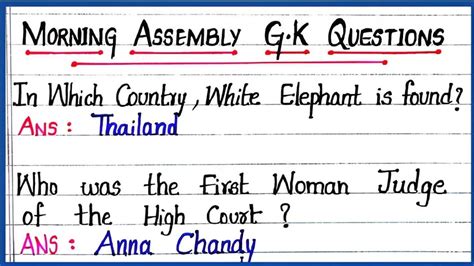 Morning Assembly G.K Questions
In Which Country, White Elephant is found?
Ans: Thailand
Who was the First Woman Judge
of the High Court ?
Ans: Anna Chandy